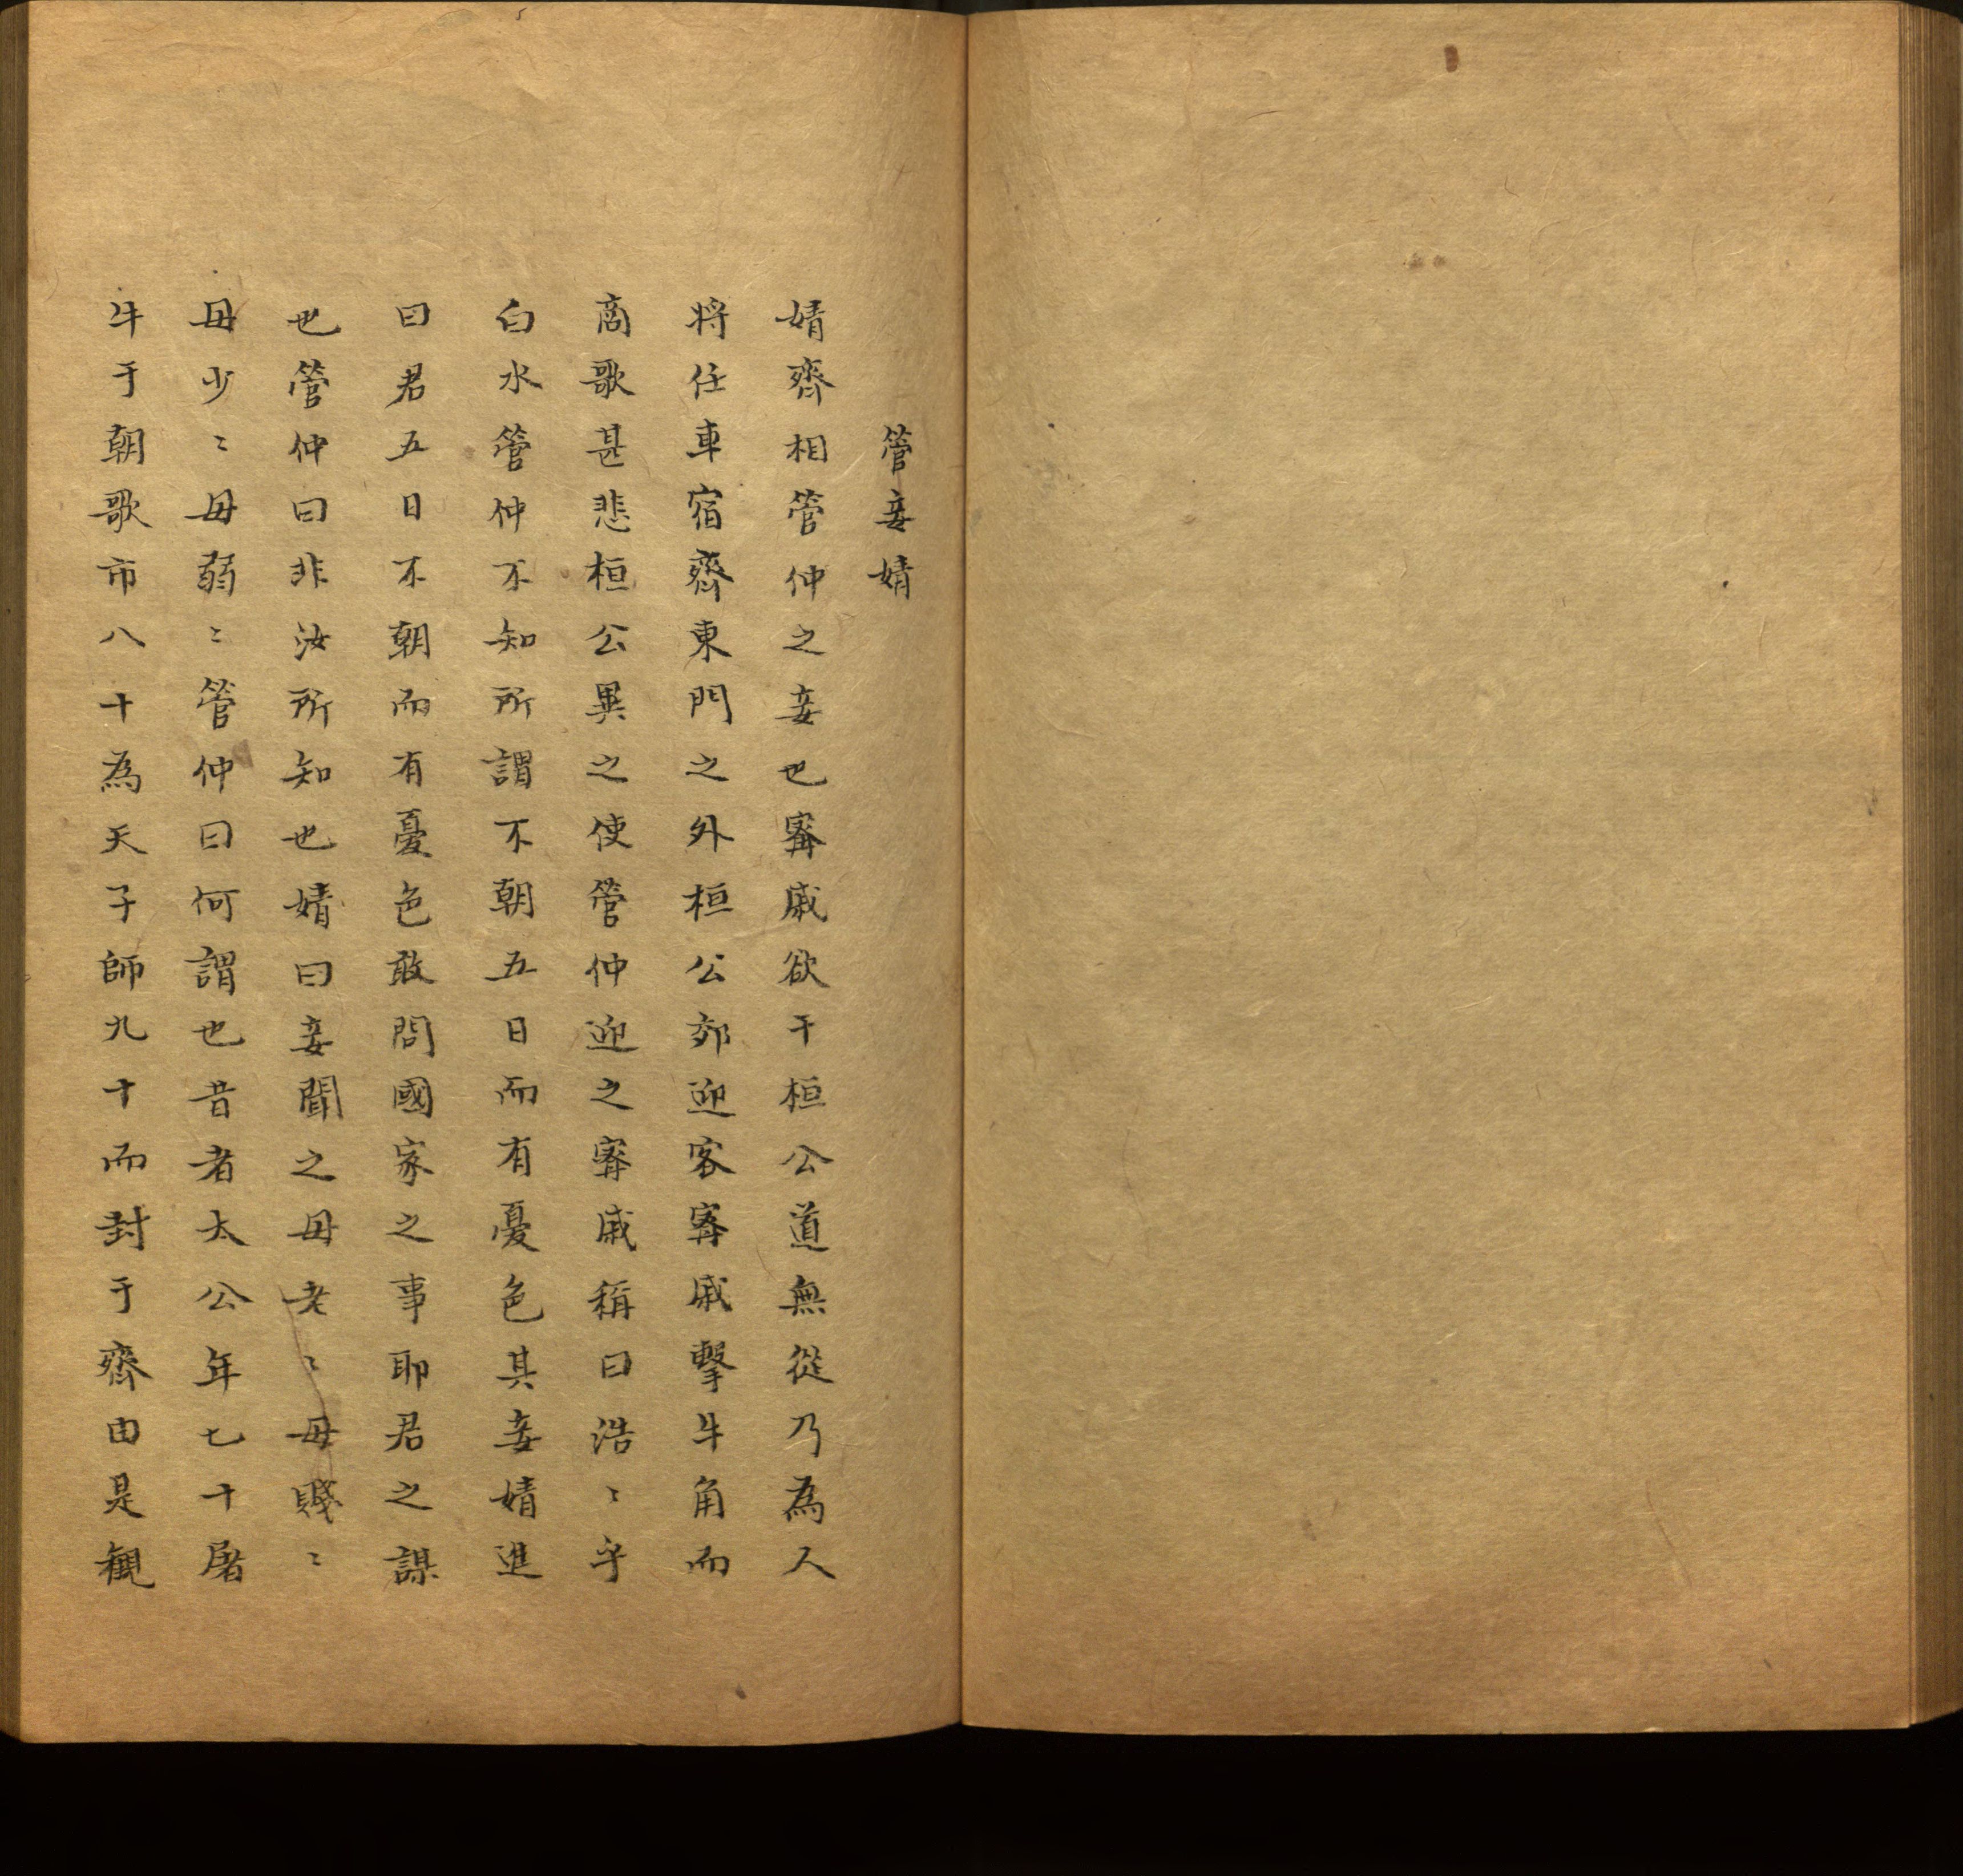 管妾婧
婧齊相管仲之妾也甯戚欲干桓公道無從乃為人
將任車宿齊東門之外桓公郊迎客甯戚擊牛角而
商歌甚悲桓公異之使管仲迎之甯戚稱曰浩〻乎
白水管仲不知所謂不朝五日而有憂色其妾婧進
曰君五日不朝而有憂色敢問國家之事耶君之謀
也管仲曰非汝所知也婧曰妾聞之毋老〻毋賤〻
毋少〻毋弱〻管仲曰何謂也昔者太公年七十屠
牛于朝歌市八十為天子師九十而封于齊由是觀